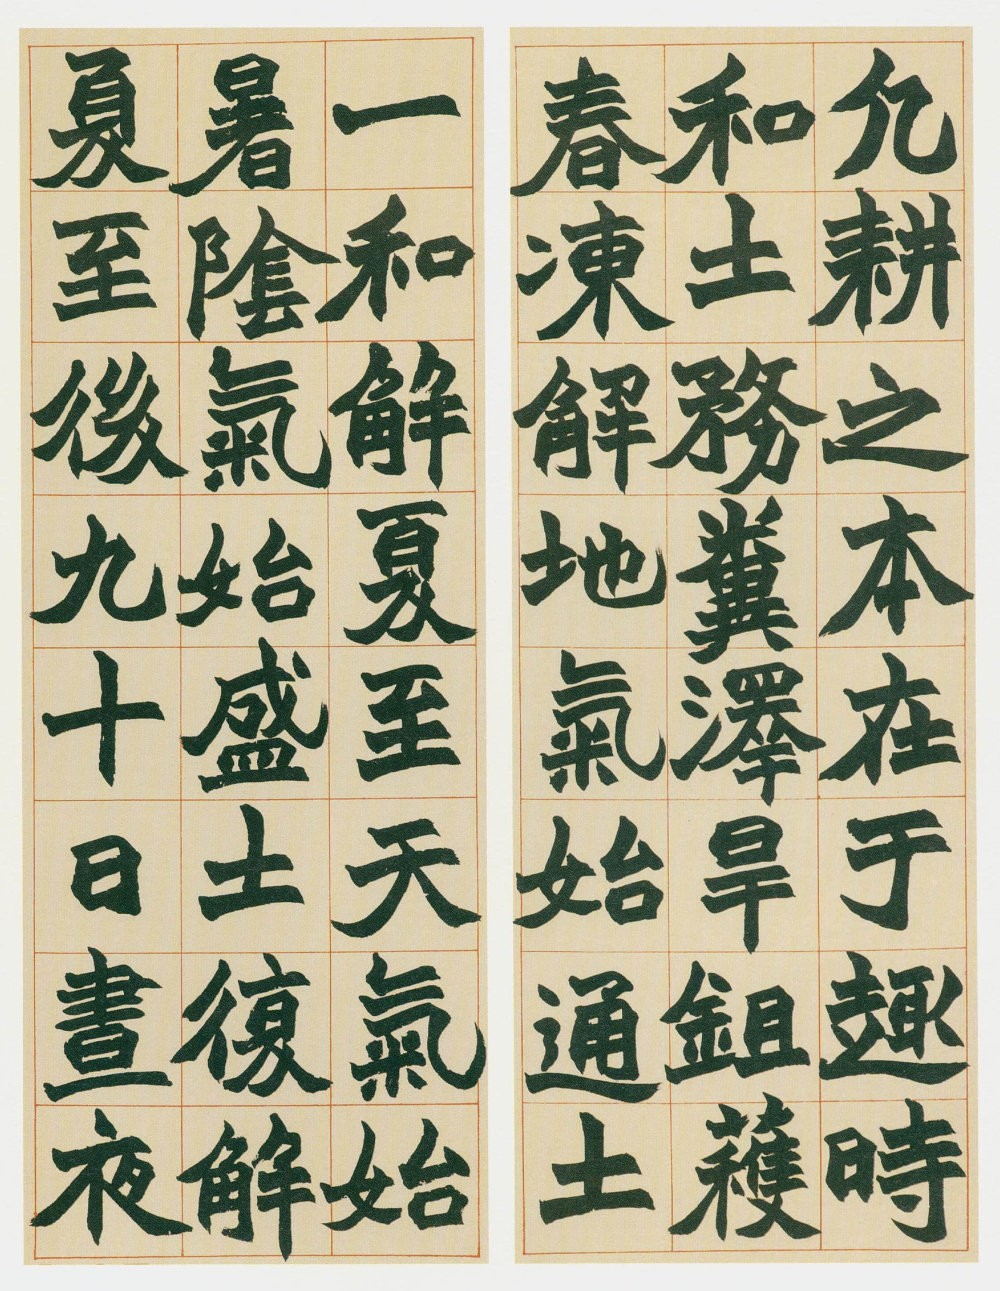 凢耕之本在于趣時
和土務糞澤旱鉏䕶
春凍解地氣始通土
一和解夏至天氣始
暑陰氣始盛土復解
夏至後九十日晝夜